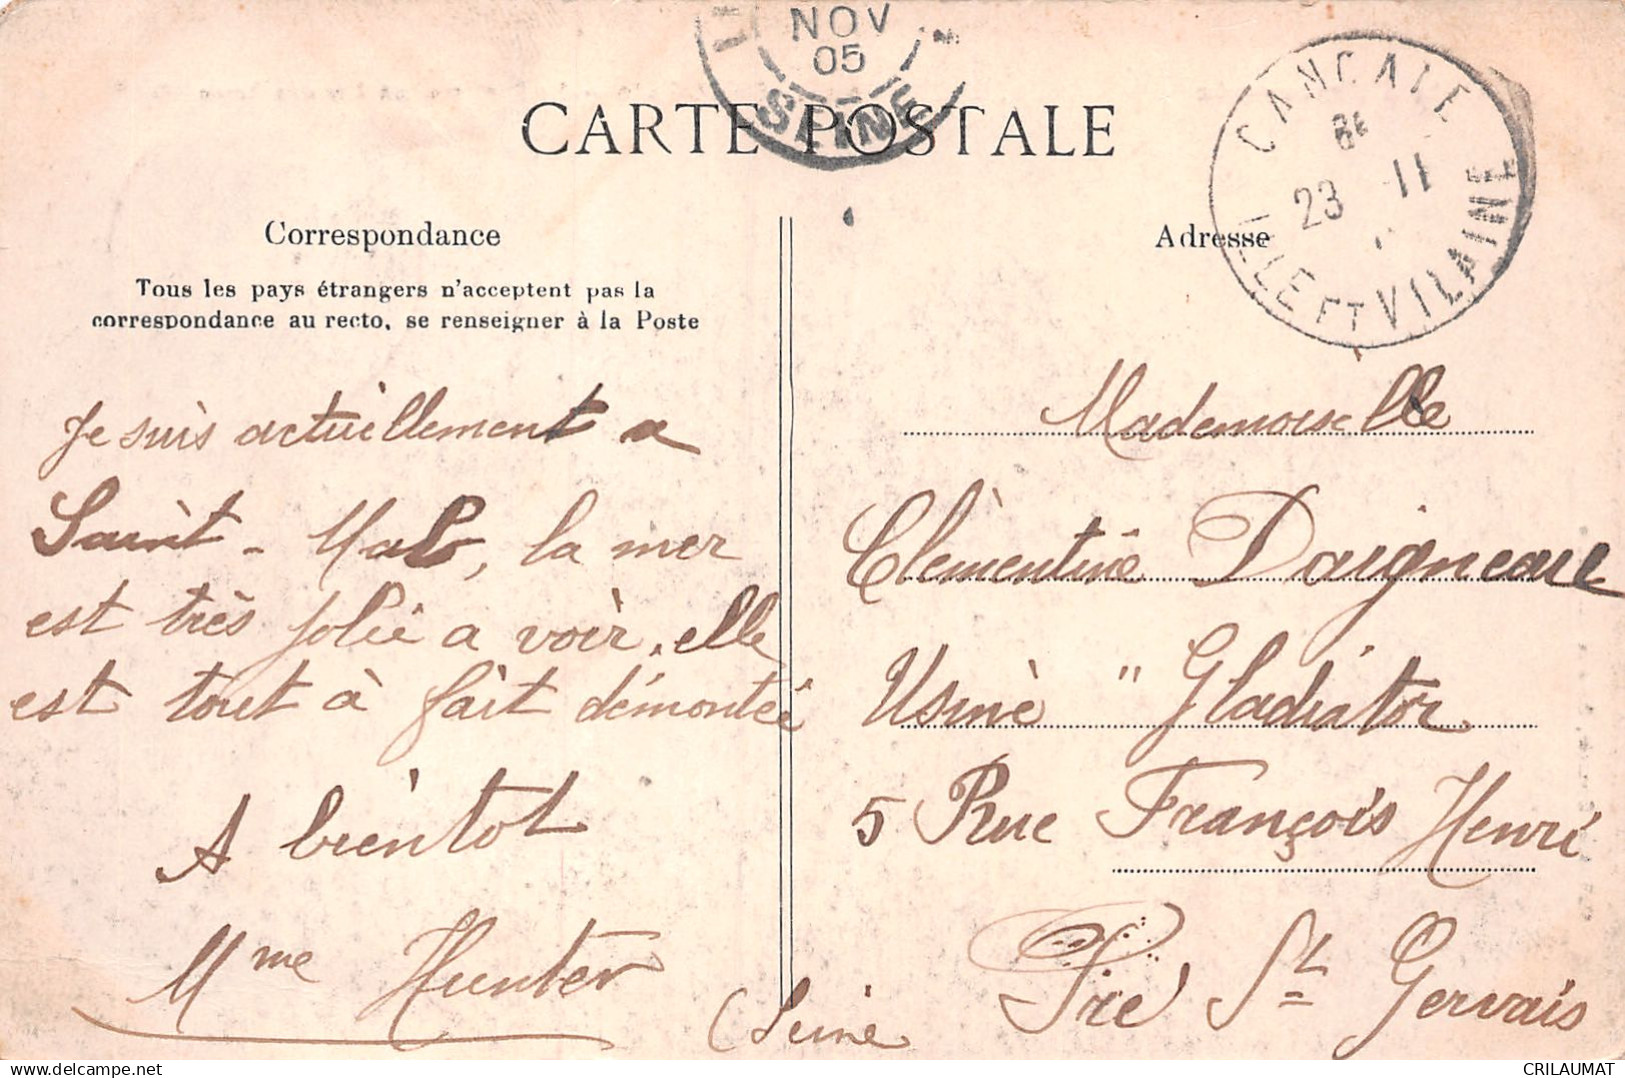 NOV
05
SEINE
CANCALE
23 11
ILLE ET VILAINE
CARTE POSTALE
Correspondance
Tous les pays étrangers n'acceptent pas la
correspondance au recto, se renseigner à la Poste
Je suis actuellement a
Saint-Malo, la mer
est très jolie a voir, elle
est tout à fait démontée
A bientot
Mme Hunter
Adresse
Mademoiselle
Clémentine Daigneau
Usine " Gladiator
5 Rue François Henri
Pré St Gervais
(Seine
CRILAUMAT